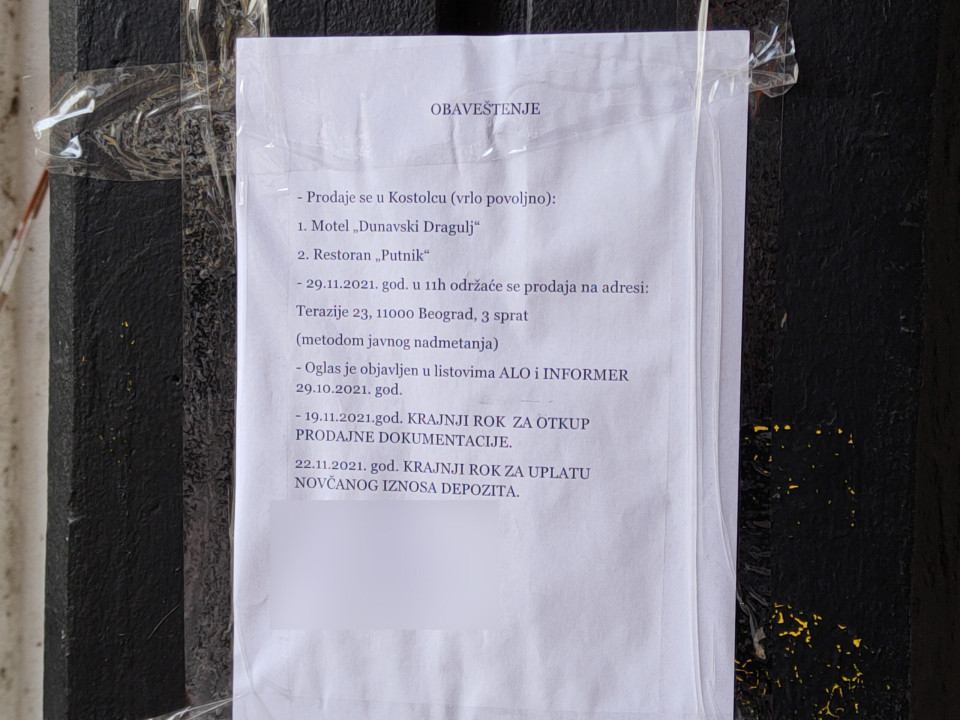 OBAVEŠTENJE
- Prodaje se u Kostolcu (vrlo povoljno):
1. Motel „Dunavski Dragulj“
2. Restoran „Putnik“
- 29.11.2021. god. u 11h održaće se prodaja na adresi:
Terazije 23, 11000 Beograd, 3 sprat
(metodom javnog nadmetanja)
- Oglas je objavljen u listovima ALO i INFORMER
29.10.2021. god.
- 19.11.2021.god. KRAJNJI ROK ZA OTKUP
PRODAJNE DOKUMENTACIJE.
22.11.2021. god. KRAJNJI ROK ZA UPLATU
NOVČANOG IZNOSA DEPOZITA.